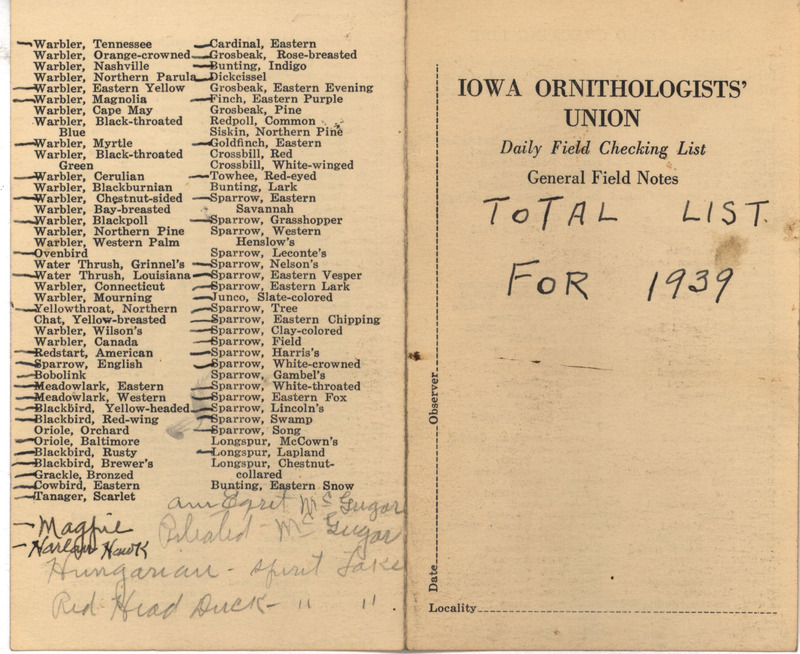 Warbler, Tennessee
Warbler, Orange-crowned
Warbler, Nashville
Warbler, Northern Parula
Warbler, Eastern Yellow
Warbler, Magnolia
Warbler, Cape May
Warbler, Black-throated
Blue
Warbler, Myrtle
Warbler, Black-throated
Green
Warbler, Cerulian
Warbler, Blackburnian
Warbler, Chestnut-sided
Warbler, Bay-breasted
Warbler, Blackpoll
Warbler, Northern Pine
Warbler, Western Palm
Ovenbird
Water Thrush, Grinnel's
Water Thrush, Louisiana
Warbler, Connecticut
Warbler, Mourning
Yellowthroat, Northern
Chat, Yellow-breasted
Warbler, Wilson's
Warbler, Canada
Redstart, American
Sparrow, English
Bobolink
Meadowlark, Eastern
Meadowlark, Western
Blackbird, Yellow-headed
Blackbird, Red-wing
Oriole, Orchard
Oriole, Baltimore
Blackbird, Rusty
Blackbird, Brewer's
Grackle, Bronzed
Cowbird, Eastern
Tanager, Scarlet
Cardinal, Eastern
Grosbeak, Rose-breasted
Bunting, Indigo
Dickcissel
Grosbeak, Eastern Evening
Finch, Eastern Purple
Grosbeak, Pine
Redpoll, Common
Siskin, Northern Pine
Goldfinch, Eastern
Crossbill, Red
Crossbill, White-winged
Towhee, Red-eyed
Bunting, Lark
Sparrow, Eastern
Savannah
Sparrow, Grasshopper
Sparrow, Western
Henslow's
Sparrow, Leconte's
Sparrow, Nelson's
Sparrow, Eastern Vesper
Sparrow, Eastern Lark
Junco, Slate-colored
Sparrow, Tree
Sparrow, Eastern Chipping
Sparrow, Clay-colored
Sparrow, Field
Sparrow, Harris's
Sparrow, White-crowned
Sparrow, Gambel's
Sparrow, White-throated
Sparrow, Eastern Fox
Sparrow, Lincoln's
Sparrow, Swamp
Sparrow, Song
Longspur, McCown's
Longspur, Lapland
Longspur, Chestnut-
collared
Bunting, Eastern Snow
Am Egret McGugar
Magpie
Pileated - McGugar
Harlan Hawk
Hungarian - Spirit Lake
Red Head Duck - " "
IOWA ORNITHOLOGISTS'
UNION
Daily Field Checking List
General Field Notes
TOTAL LIST.
FOR 1939
Observer
Date
Locality